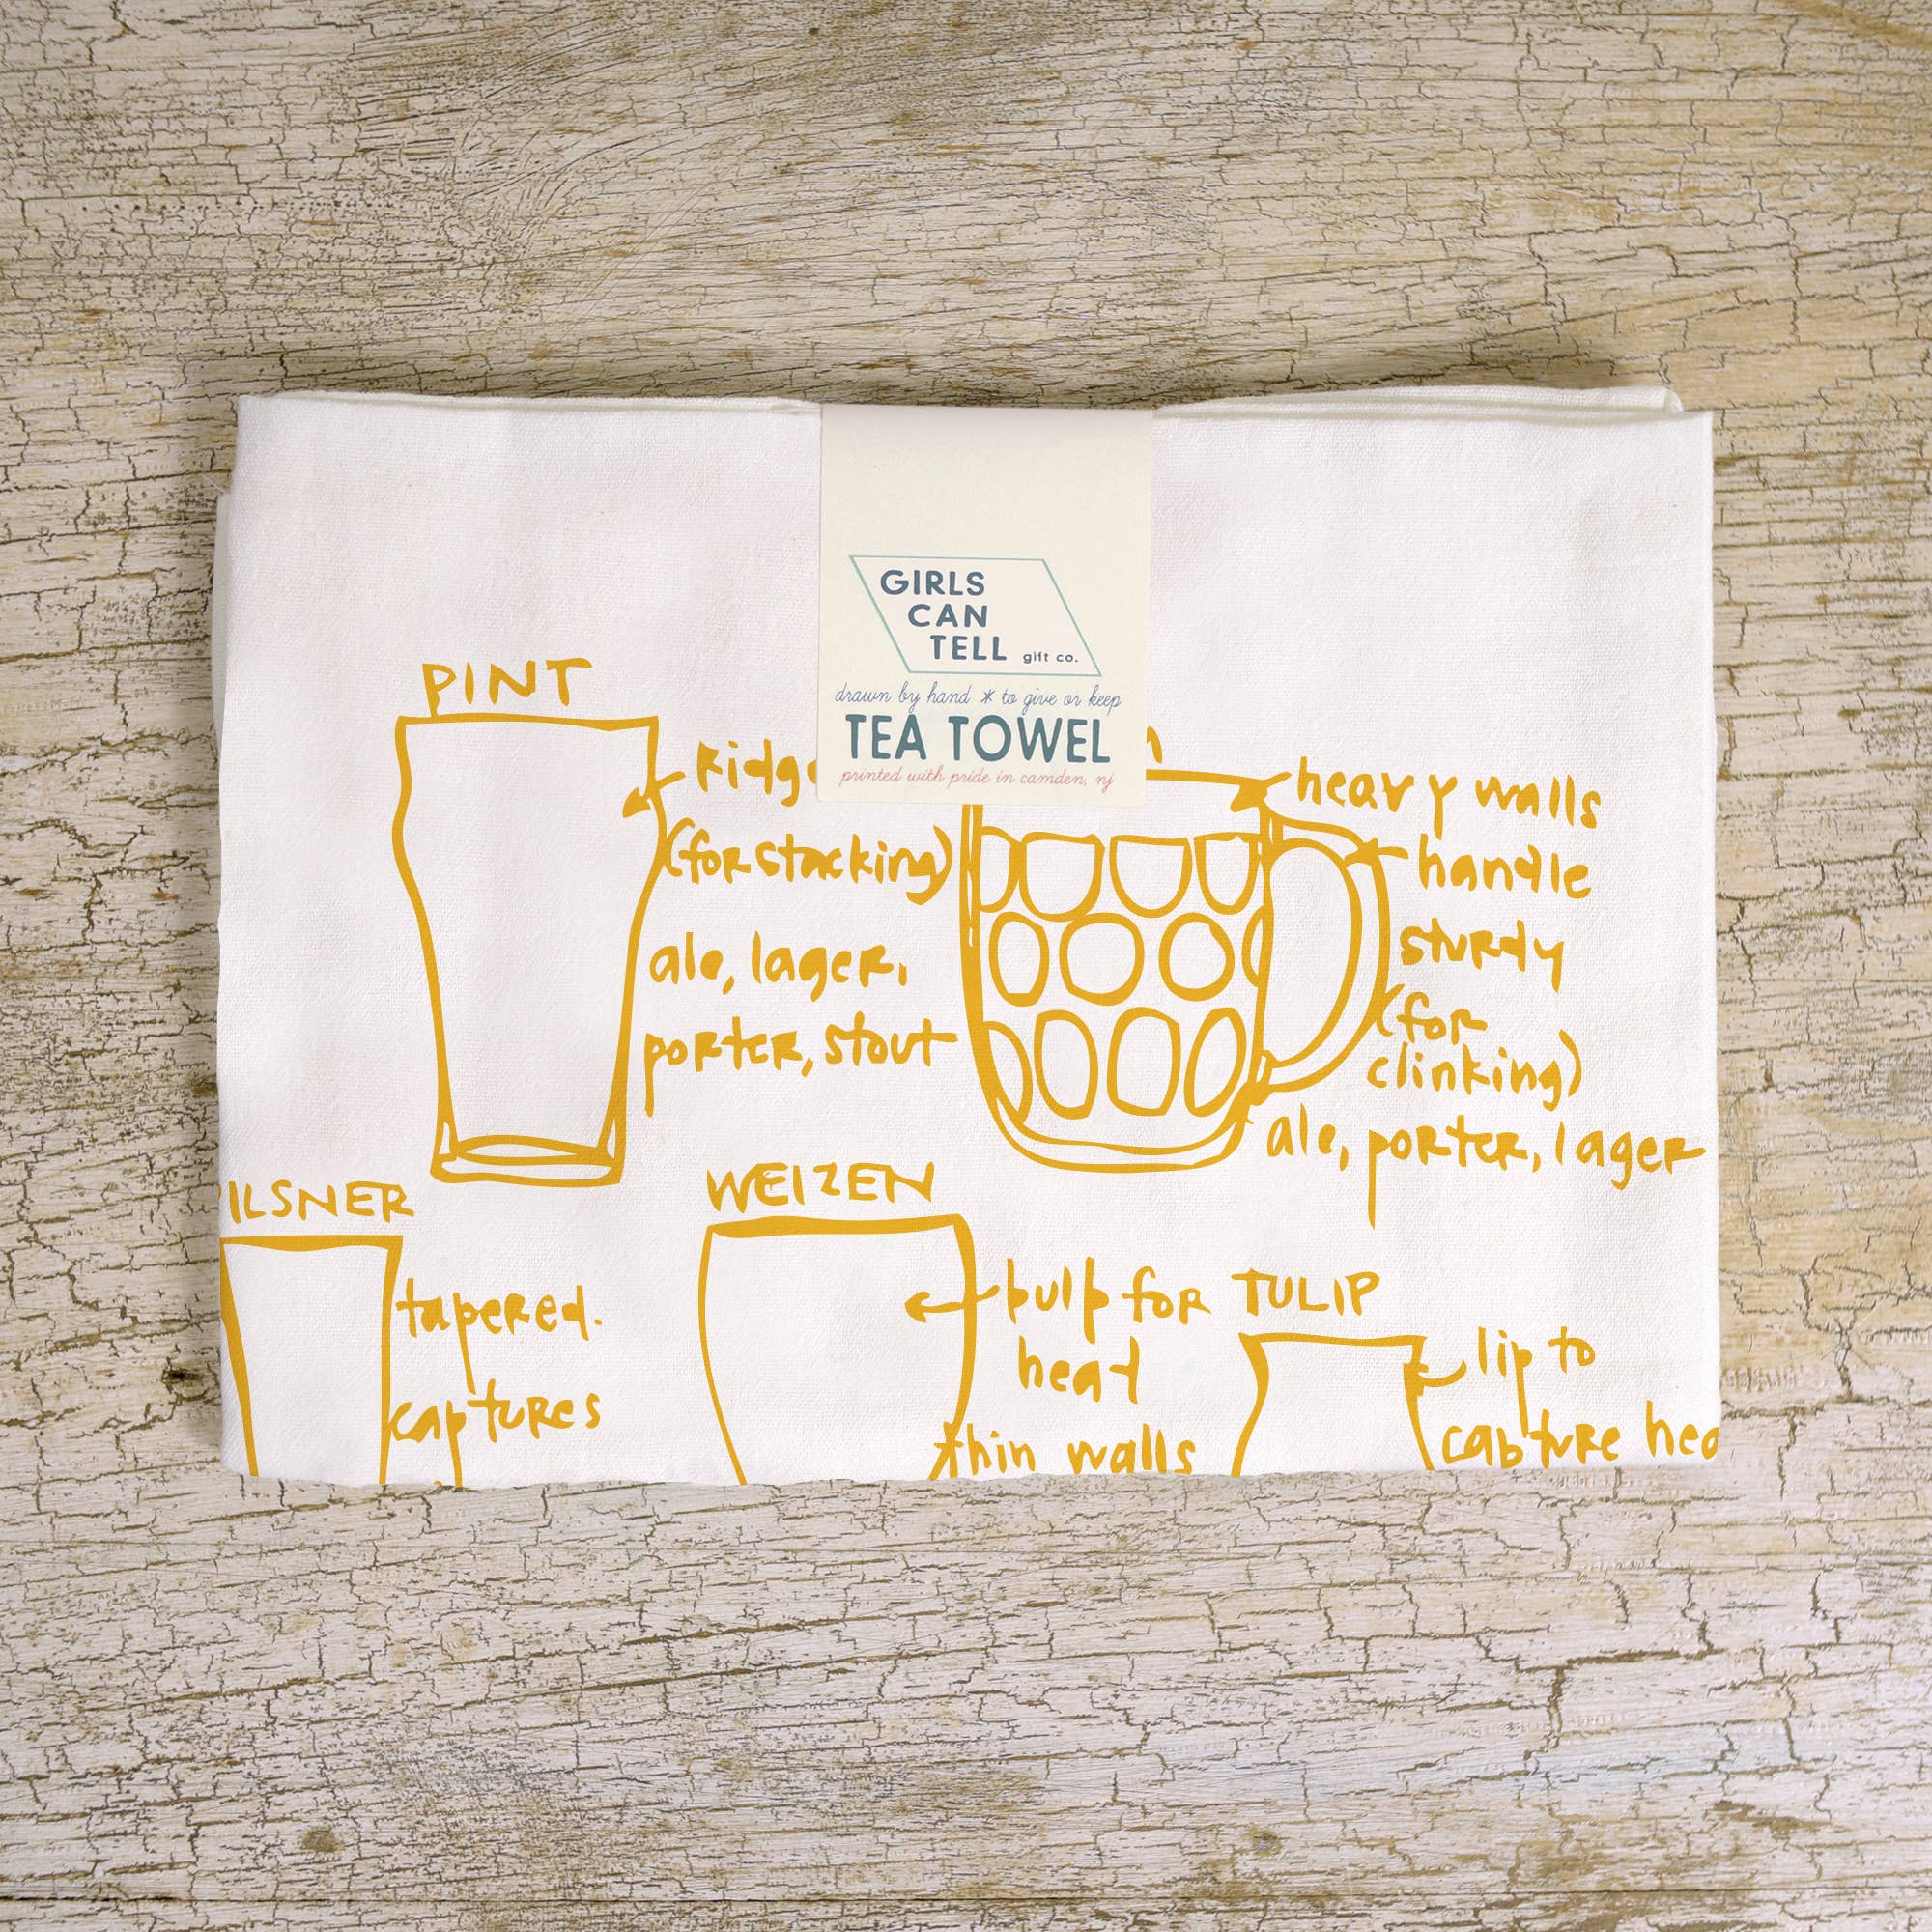 GIRLS
CAN
TELL gift co.
drawn by hand * to give or keep
TEA TOWEL
printed with pride in camden, nj
PINT
(for stacking)
ale, lager,
porter, stout
heavy walls
handle
sturdy
(for
clinking)
ale, porter, lager
PILSNER
tapered.
captures
WEIZEN
bulb for
head
thin walls
TULIP
lip to
capture